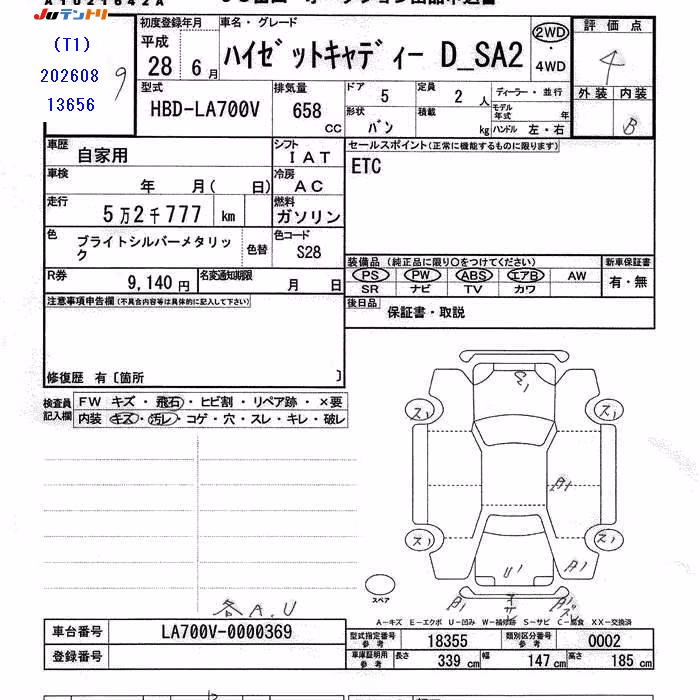 A1021642A
JUテントリ
(T1)
202608
13656
9
初度登録年月
平成
28 6月
車名・グレード
ハイゼットキャディー D_SA2
2WD
・
4WD
評価点
4
外装 内装
B
型式
HBD-LA700V
排気量
658
CC
ドア
5
定員
2 人
ディーラー・並行
モデル年式 年
形状
バン
積載
kg
ハンドル 左・右
車歴
自家用
シフト
IAT
車検
年 月( 日)
冷房
AC
走行
5万2千777 km
燃料
ガソリン
色
ブライトシルバーメタリック
色替
色コード
S28
R券
9,140円
名変通知期限
月 日
セールスポイント(正常に機能するものに限ります)
ETC
装備品 (純正品に限り○をつけてください)
PS PW ABS エアB AW
SR ナビ TV カワ
新車保証書
有・無
後日品
保証書・取説
注意事項申告欄(不具合内容等は具体的に記入して下さい)
修復歴 有〔箇所 〕
検査員記入欄
FW キズ・飛石・ヒビ割・リペア跡・×要
内装 キズ・汚レ・コゲ・穴・スレ・キレ・破レ
各A.U
ス1
ス1
A1
ス1
ス1
U1
A1
A1
スペア
A−キズ E−エクボ U−凹み W−補修跡 S−サビ C−腐食 XX−交換済
車台番号
LA700V-0000369
登録番号
型式指定番号 参考
18355
類別区分番号 参考
0002
車庫証明用 参考
長さ 339 cm
幅 147 cm
高さ 185 cm